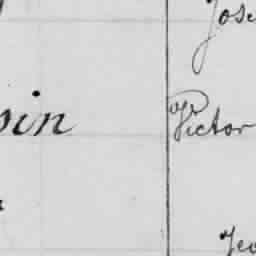 Jose
sin Victor
Jeo